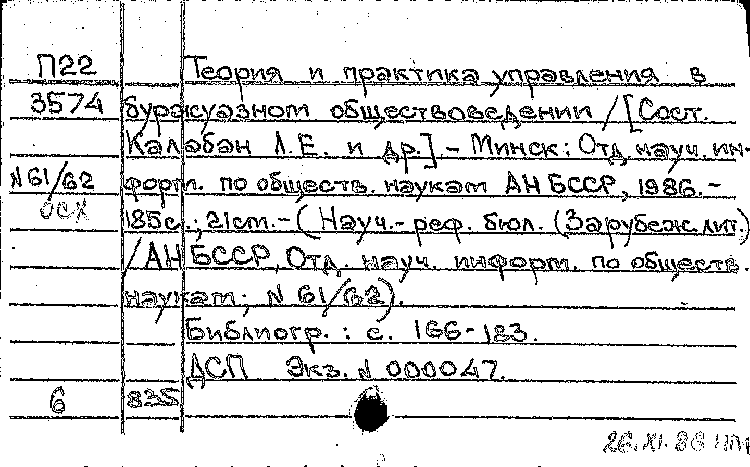 П22 Теория и практика управления в
3574 буржуазном обществоведении / [Сост.
Калабан Л.Е. и др.] - Минск: Отд. науч. ин-
N 61/62 форм. по обществ. наукам АН БССР, 1986.-
ОСХ 185с.; 21см.- (Науч.-реф. бюл. (Зарубеж. лит.)
/АН БССР, Отд. науч. информ. по обществ.
наукам; N 61/62).
Библиогр.: с. 166-183.
ДСП Экз. N 000047.
6 835
26.XI.86